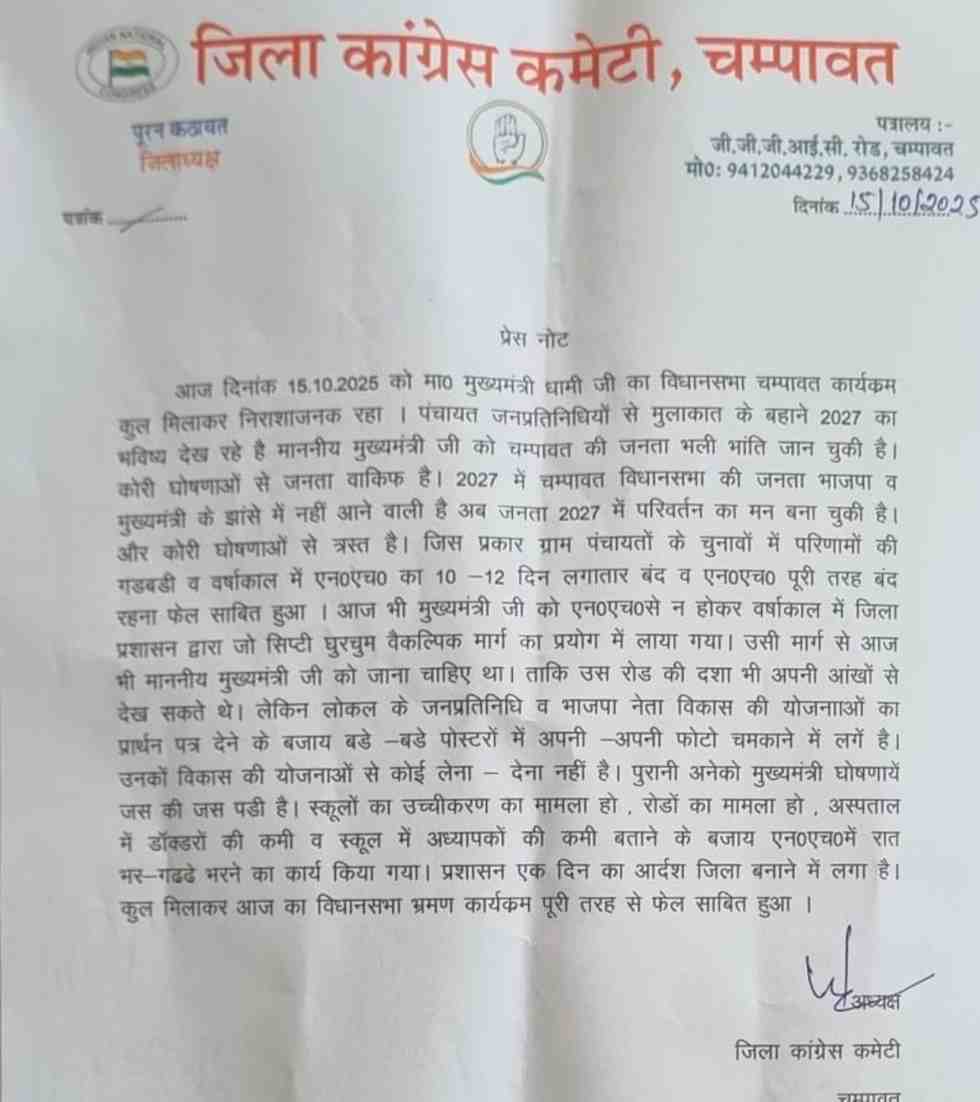 INDIAN NATIONAL
CONGRESS
जिला कांग्रेस कमेटी, चम्पावत
पूरन कठायत
जिलाध्यक्ष
पत्रालय :-
जी.जी.जी.आई.सी. रोड, चम्पावत
मो0: 9412044229, 9368258424
पत्रांक ..............
दिनांक 15/10/2025
प्रेस नोट
आज दिनांक 15.10.2025 को मा0 मुख्यमंत्री धामी जी का विधानसभा चम्पावत कार्यक्रम
कुल मिलाकर निराशाजनक रहा । पंचायत जनप्रतिनिधियों से मुलाकात के बहाने 2027 का
भविष्य देख रहे है माननीय मुख्यमंत्री जी को चम्पावत की जनता भली भांति जान चुकी है।
कोरी घोषणाओं से जनता वाकिफ है। 2027 में चम्पावत विधानसभा की जनता भाजपा व
मुख्यमंत्री के झांसे में नहीं आने वाली है अब जनता 2027 में परिवर्तन का मन बना चुकी है।
और कोरी घोषणाओं से त्रस्त है। जिस प्रकार ग्राम पंचायतों के चुनावों में परिणामों की
गडबडी व वर्षाकाल में एन0एच0 का 10 –12 दिन लगातार बंद व एन0एच0 पूरी तरह बंद
रहना फेल साबित हुआ । आज भी मुख्यमंत्री जी को एन0एच0से न होकर वर्षाकाल में जिला
प्रशासन द्वारा जो सिप्टी घुरचुम वैकल्पिक मार्ग का प्रयोग में लाया गया। उसी मार्ग से आज
भी माननीय मुख्यमंत्री जी को जाना चाहिए था। ताकि उस रोड की दशा भी अपनी आंखों से
देख सकते थे। लेकिन लोकल के जनप्रतिनिधि व भाजपा नेता विकास की योजनााओं का
प्रार्थन पत्र देने के बजाय बडे –बडे पोस्टरों में अपनी –अपनी फोटो चमकाने में लगें है।
उनकों विकास की योजनाओं से कोई लेना – देना नहीं है। पुरानी अनेको मुख्यमंत्री घोषणायें
जस की जस पडी है। स्कूलों का उच्चीकरण का मामला हो , रोडों का मामला हो , अस्पताल
में डॉक्डरों की कमी व स्कूल में अध्यापकों की कमी बताने के बजाय एन0एच0में रात
भर–गढढे भरने का कार्य किया गया। प्रशासन एक दिन का आर्दश जिला बनाने में लगा है।
कुल मिलाकर आज का विधानसभा भ्रमण कार्यक्रम पूरी तरह से फेल साबित हुआ ।
अध्यक्ष
जिला कांग्रेस कमेटी
चम्पावत